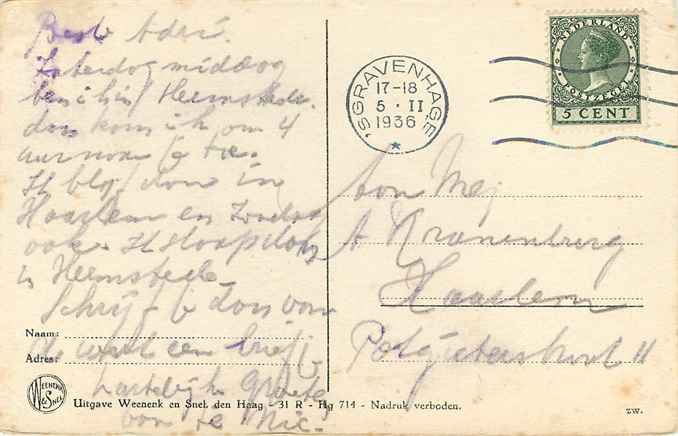 Beste Adri.
Zaterdag middag
ben ik in Heemstede.
dan kom ik om 4
uur naar je toe.
Ik blijf dan in
Haarlem en Zondag
ook. Ik slaap dan
in Heemstede
Schrijf je dan van
een briefje
hartelijke Groete
van
's GRAVENHAGE
17-18
5 · II
1936
NEDERLAND
POSTZEGEL
5 CENT
Aan Mej
A Kranenburg
Haarlem
Potgieterstraat 11
Naam:
Adres:
WEENENK & SNEL
Uitgave Weenenk en Snel, den Haag - 31 R - Hg 714 - Nadruk verboden.
zw.